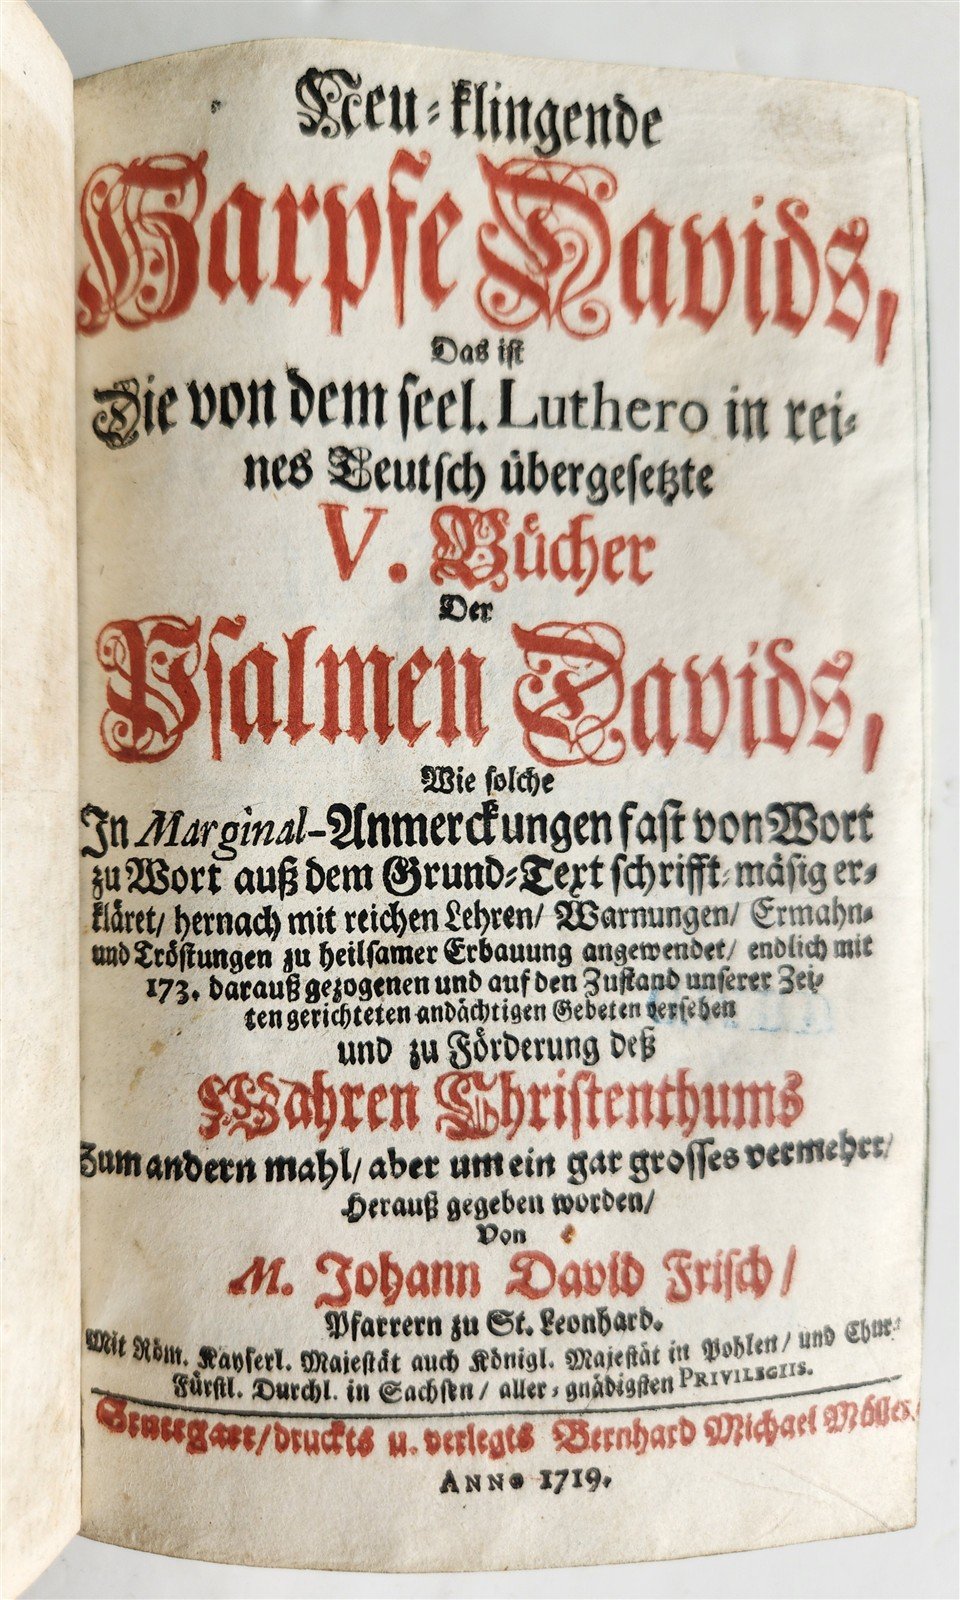 Neu-klingende
Harpfe Davids,
Das ist
Die von dem seel. Luthero in rei-
nes Teutsch übergesetzte
V. Bücher
Der
Psalmen Davids,
Wie solche
In Marginal-Anmerckungen fast von Wort
zu Wort auß dem Grund-Text schrifft-mäsig er-
kläret/ hernach mit reichen Lehren/ Warnungen/ Ermahn-
und Tröstungen zu heilsamer Erbauung angewendet/ endlich mit
173. darauß gezogenen und auf den Zustand unserer Zei-
ten gerichteten andächtigen Gebeten versehen
und zu Förderung deß
Wahren Christenthums
Zum andern mahl/ aber um ein gar grosses vermehrt/
Herauß gegeben worden/
Von
M. Johann David Frisch/
Pfarrern zu St. Leonhard.
Mit Röm. Kayserl. Majestät auch Königl. Majestät in Pohlen/ und Chur-
Fürstl. Durchl. in Sachsen/ aller-gnädigsten PRIVILEGIIS.
Stuttgart/ druckts u. verlegts Bernhard Michael Müller.
ANNO 1719.